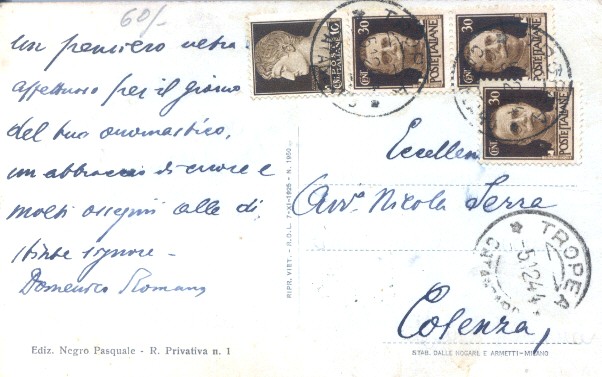 60/-
Un pensiero veтра
affettuoso per il giorno
del tuo onomastico,
un abbraccio di cuore e
molti ossequi alle di
stinte signore -
Domenico Romano
Ediz. Negro Pasquale - R. Privativa n. 1
RIPR. VIET. - R.O.L. 7-XI-1925 - N. 1950
10
POSTE ITALIANE
CENT 30
POSTE ITALIANE
CENT 30
POSTE ITALIANE
CENT 30
POSTE ITALIANE
TROPEA
Eccellen
Avv. Nicola Serra
TROPEA
-5.12.44
Cosenza,
STAB. DALLE NOGARE E ARMETTI - MILANO